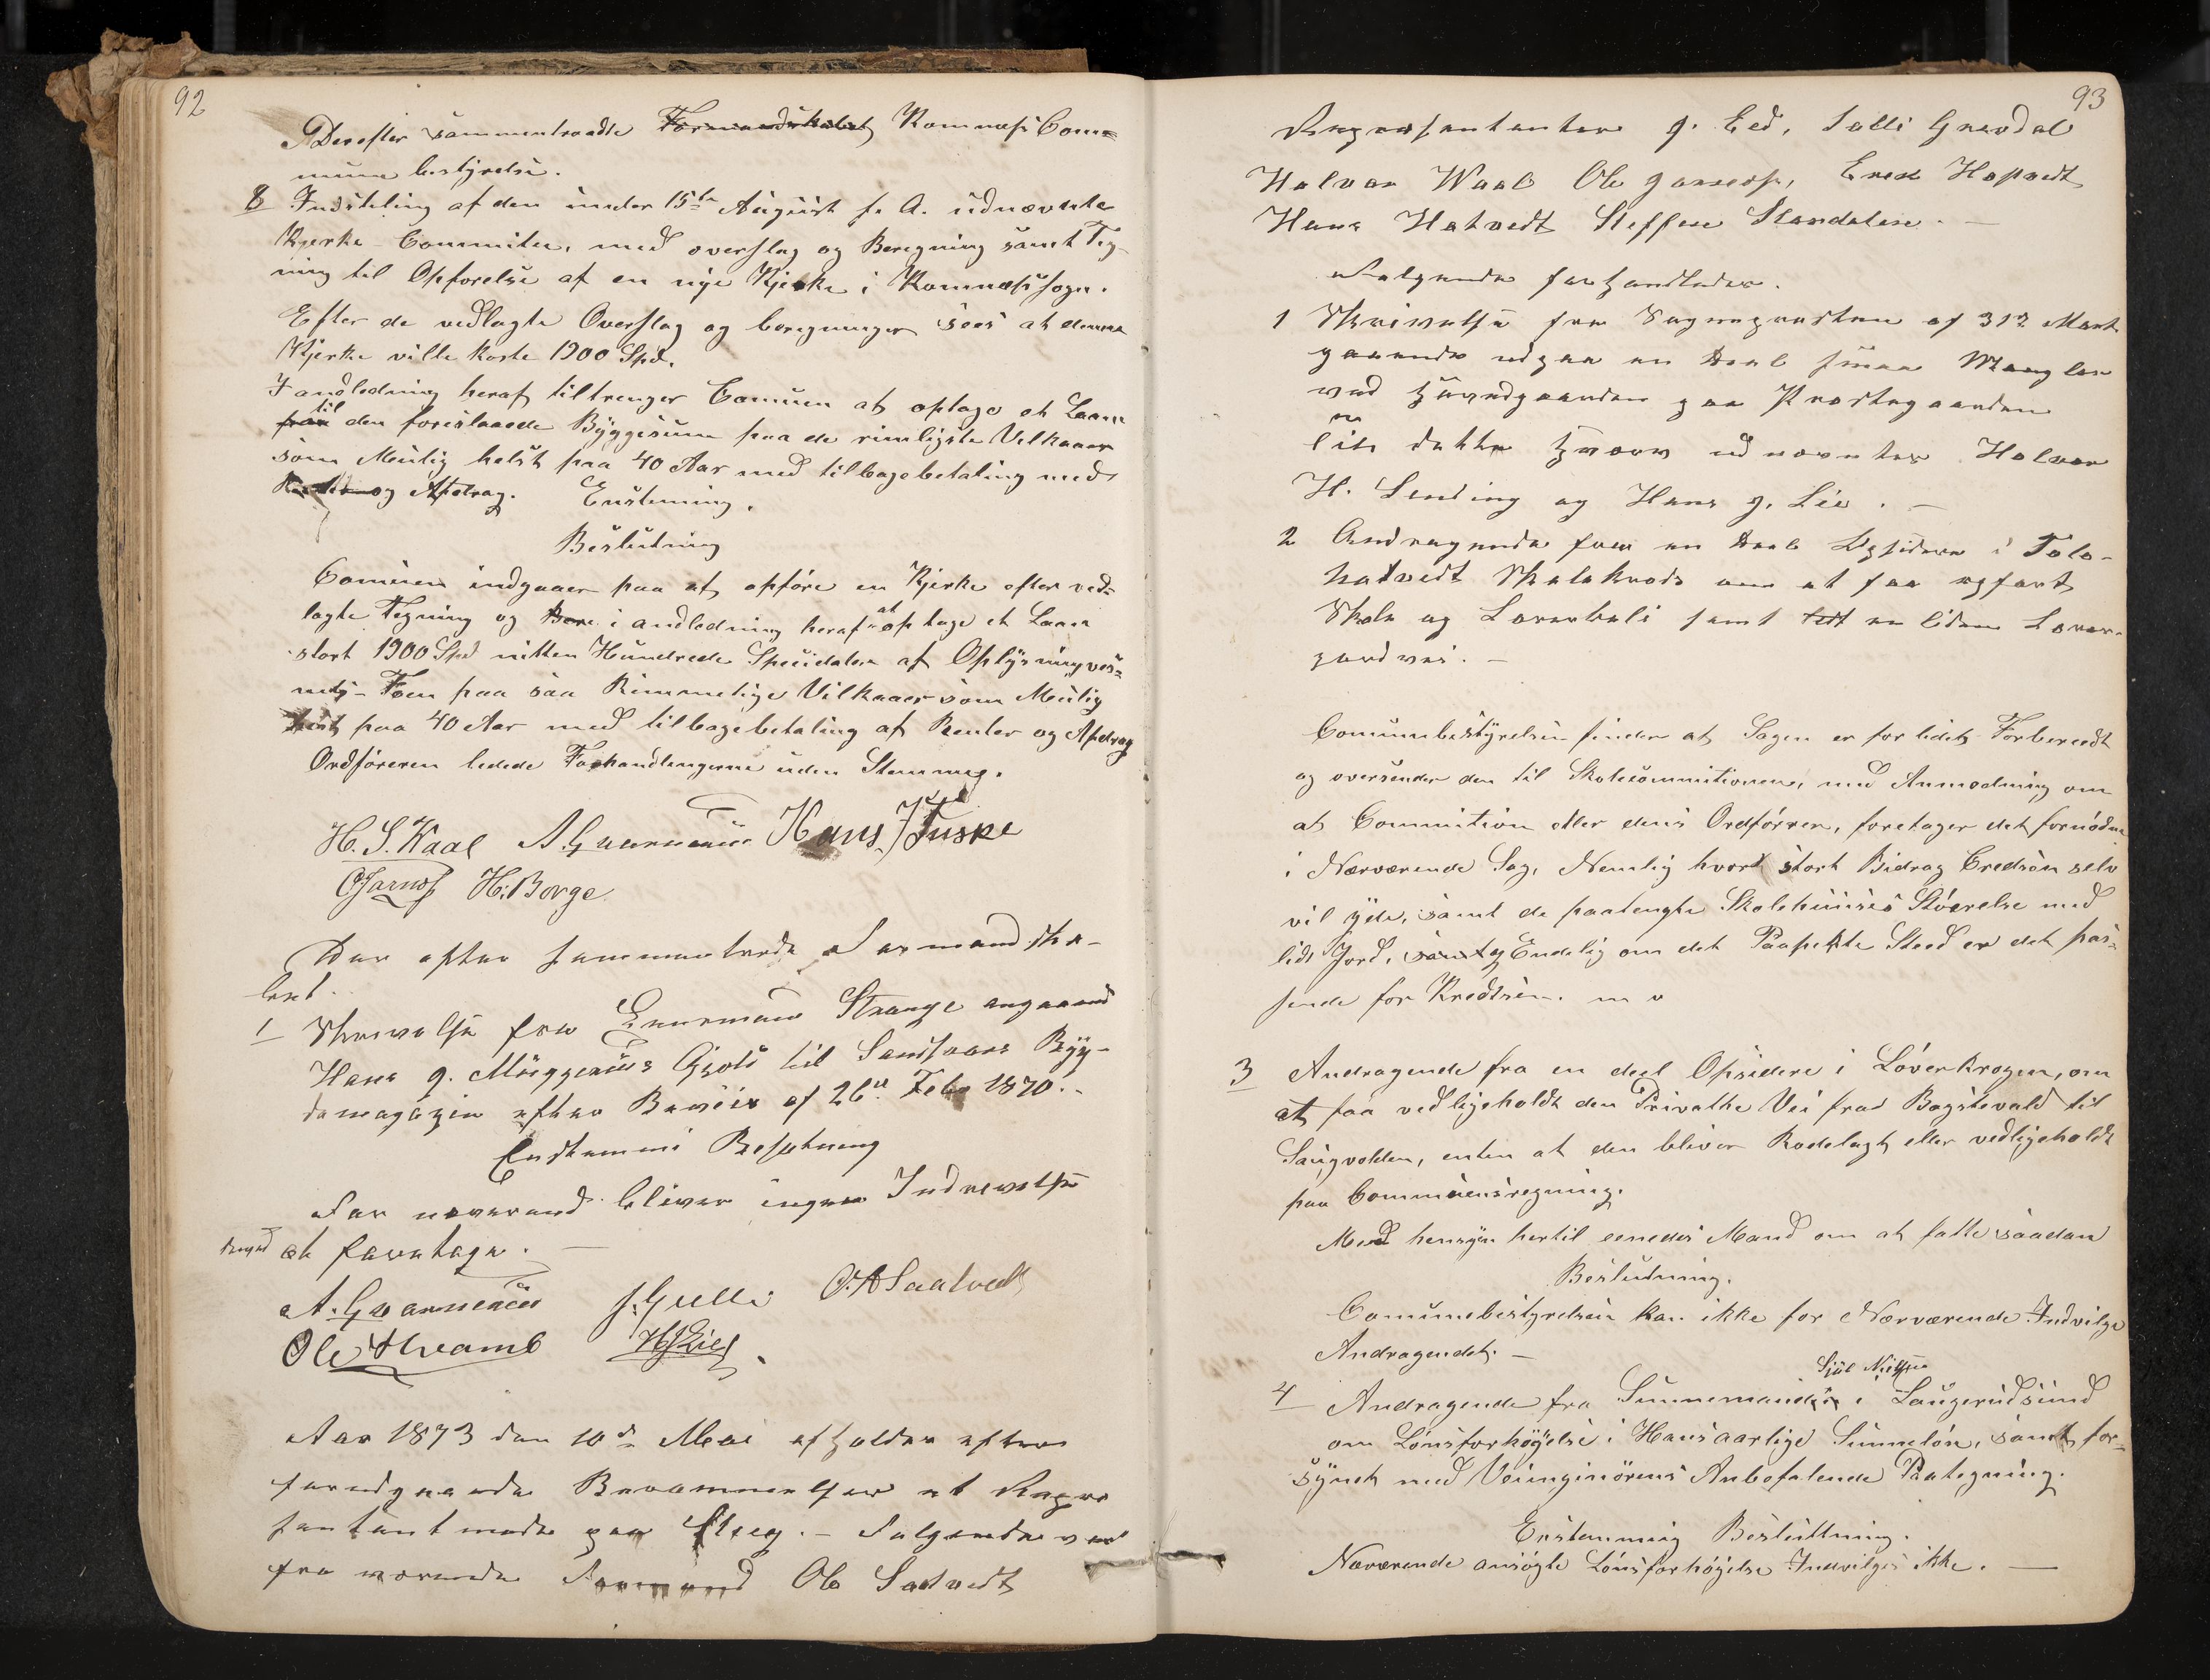 92
Derefter sammentraadte Formandskabet Komnæs Com=
mune bestÿrelse.
8 Indstiling af den under 15de August f. A. udnævnte
Kjerke Commite, med overslag og Beregning samt Teg-
ning til Opførelse af en nÿe Kjerke i Komnæs sogn.
Efter de vedlagte Overslag og beregninger sees at denne
Kjerke ville koste 1900 Spd.
I andledning heraf tiltrenger Comuen at optage et Laan
til den foreslaaede Bÿggesum paa de rimligste Vilkaar
som Meulig helst paa 40 Aar med tilbagebetaling med
og Afdrag. Enstemig.
Beslutning
Comuen indgaaer paa at opføre en Kjerke efter ved=
lagte Tegning og i andledning heraf at optage et Laan
stort 1900 Spd nitten Hundrede Speciedaler af Oplÿsningves=
nets Fon paa saa Rimmelige Vilkaaer som Meulig
helst paa 40 Aar med tilbagebetaling af Renter og Afdrag
Ordføreren ledede Forhandlingerne uden Stemmeg.
H. S. Waal A. Gvarnerius Hans J Fuske
H. Borge
Der efter sammentrede Formandska-
bet.
1 Skrivelse fra Lensmand Strange angaaend
Hans J. Muggerud Gjeld til Sandsvær Bÿg-
demagazin efter Beviis af 26de Feb. 1870.-
Enstemmi Beslutning
For nærværend bliver ingen Indrivelse
at foretage.
A. Gvarnerius J. Gulli O. H Saatvedt
Ole Hvamb HJLie
Aar 1873 den 10de Mai afholdes efter
foregaaende Berammelser et Repræ
sentantmøde paa Steg. - Følgende var
fra værende Formand Ole Saatvedt
93
Repræsentanter J. Eed, Salli Grevdal
Halvor Waal Ole Jarness, Enok Hopvedt
Hans Hatvedt Steffen Skandalen. -
Følgende forhandledes.
1 Skrivelse fra Sognepresten af 31te Mart
gaaende udpaa en Deel smaa Mangler
ved Huusgaarden paa Prestegaarden
til dette Hværv udnævntes Halvor
H. Sending og Hans J. Lie. -
2 Andragende fra en Deel Opsidere i Tolo-
hatvedt Skolekreds om at faa opført
Skole og Lærerboli samt en liden Lærer-
jordvei. -
Comunebestÿrelsen finder at Sagen er for lidet Forberedt
og oversender den til Skolecommitionen, med Anmodning om
at Commition eller dens Ordfører, foretager det fornødne
i Nærværende Sag, Nemlig hvor stort Bidrag Credsen selv
vil ÿde, samt de paatengte Skolehuuses Støerelse med
lidt Jord, og Endelig om det Paapekte Sted er det pas=
sende for Kredsen. m v
3 Andragende fra en deel Opsidere i Løverkrogen, om
at faa vedligeholdt den Privathe Vei fra Bøgstevald til
Saugvolden, enten at den bliver Rodelagt eller vedligeholdt
paa Commuensregning.
Med hensÿn hertil eenedes Mand om at fatte saadan
Beslutning.
Comunebestyrelsen kan ikke for Nærværende Indvilge
Andragendet. -
Sjul Nielsen
4 Andragende fra Sunnemanden i Laugerudsund
om Lønsforhøÿelse i Hans aarlige Sunneløn, samt for=
sÿnet med Veiinginørens Anbefalende Paategning.
Enstemmig Besluttning.
Nærværende ansøgte Lønsforhøÿelse Indvilges ikke. -